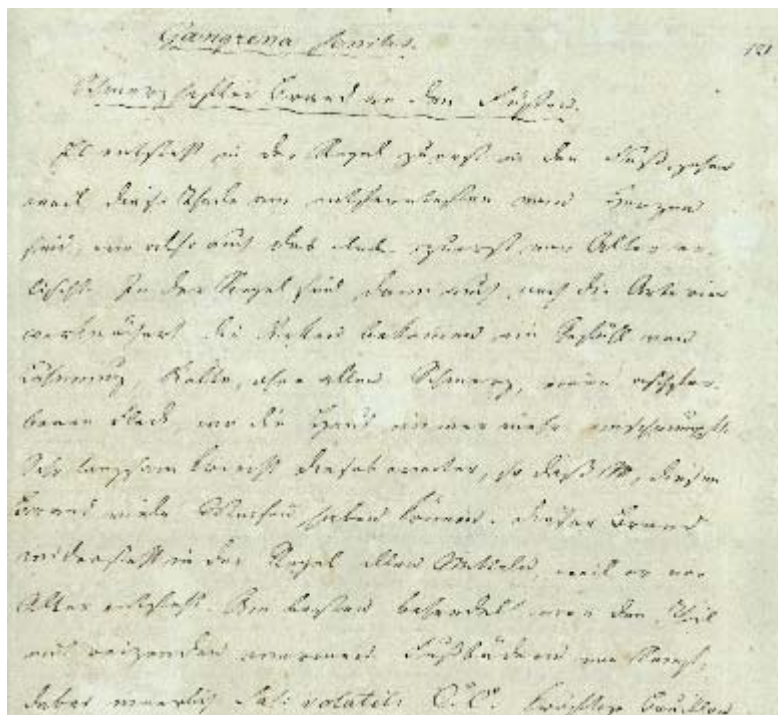 Gangrena senilis.
121
Schmerzhafter Brand an den Füßen.
Es entsteht in der Regel zuerst in den Fußzehen
weil diese Theile am entferntesten vom Herzen
sind, wo also auch das zuerst vom Alter er-
lischt. In der Regel sind dann auch noch die Arterien
verknöchert die bekommen ein Gefühl von
Lähmung, Kälte, ohne allen Schmerz, einen
Fleck, wo die Haut immer mehr einschrumpft.
Sehr langsam kriecht dieses weiter, so daß diesen
Brand viele Wochen haben können. Dieser Brand
widersteht in der Regel allen Mitteln, weil er vom
Alter entsteht. Am besten behandelt man den Theil
mit reizenden warmen Fußbädern
dabei innerlich Sal: volatile C. C. Bouillon